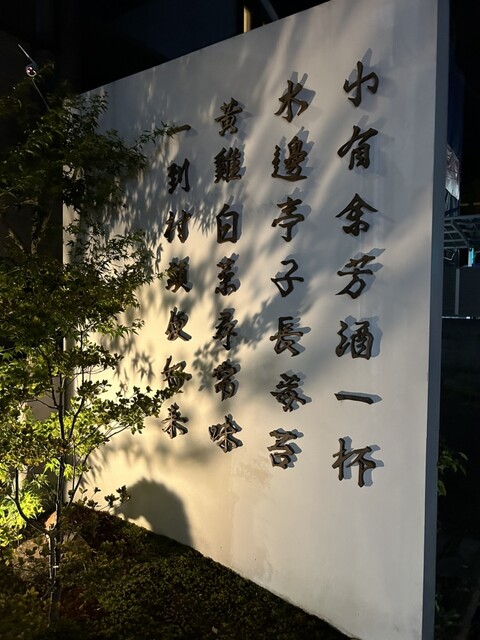 小有余芳酒一杯
水邊亭子長莓苔
黃雞白菜尋常味
一到村頭便無來